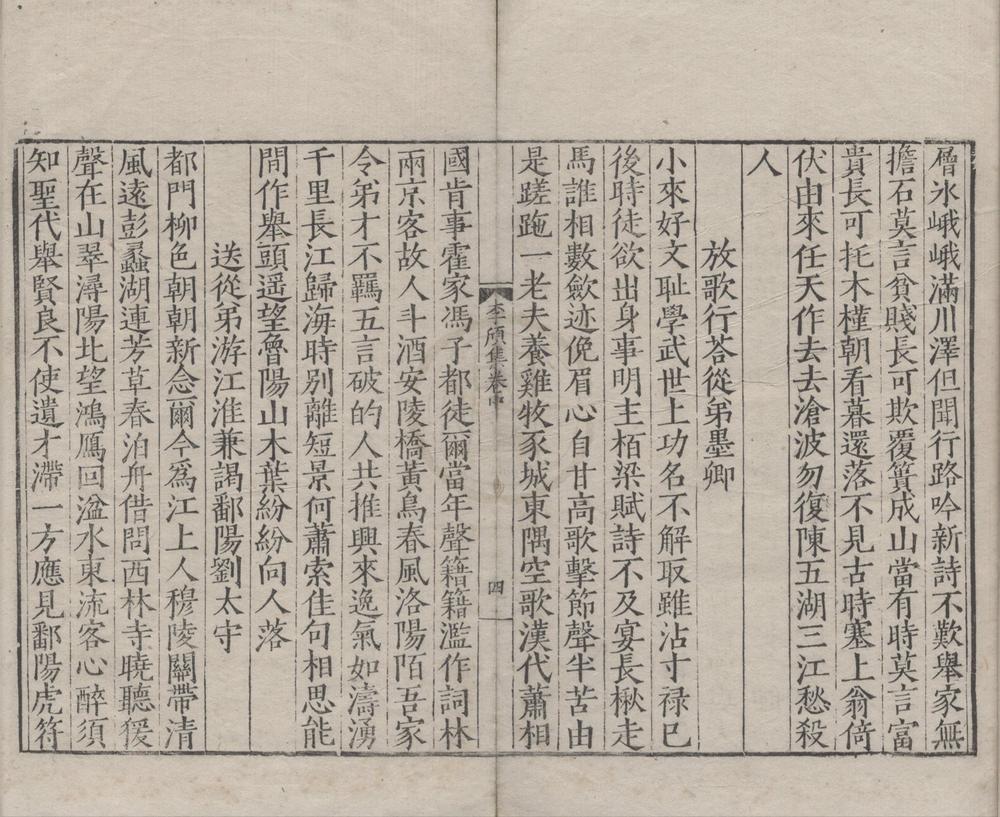 層冰峨峨滿川澤但聞行路吟新詩不歎舉家無
擔石莫言貧賤長可欺覆簣成山當有時莫言富
貴長可托木槿朝看暮還落不見古時塞上翁倚
伏由來任天作去去滄波勿復陳五湖三江愁殺
人
放歌行荅從弟墨卿
小來好文耻學武世上功名不解取雖沾寸禄已
後時徒欲出身事明主栢梁賦詩不及宴長楸走
馬誰相數歛迹俛眉心自甘高歌擊節聲半苦由
是蹉跎一老夫養雞牧豕城東隅空歌漢代蕭相
李頎集卷中
四
國肯事霍家馮子都徒爾當年聲籍籍濫作詞林
兩京客故人斗酒安陵橋黃鳥春風洛陽陌吾家
令弟才不羈五言破的人共推興來逸氣如濤湧
千里長江歸海時別離短景何蕭索佳句相思能
間作舉頭遥望魯陽山木葉紛紛向人落
送從弟游江淮兼謁鄱陽劉太守
都門柳色朝朝新念爾今爲江上人穆陵關帶清
風遠彭蠡湖連芳草春泊舟借問西林寺曉聽猨
聲在山翠潯陽北望鴻鴈回湓水東流客心醉須
知聖代舉賢良不使遺才滯一方應見鄱陽虎符